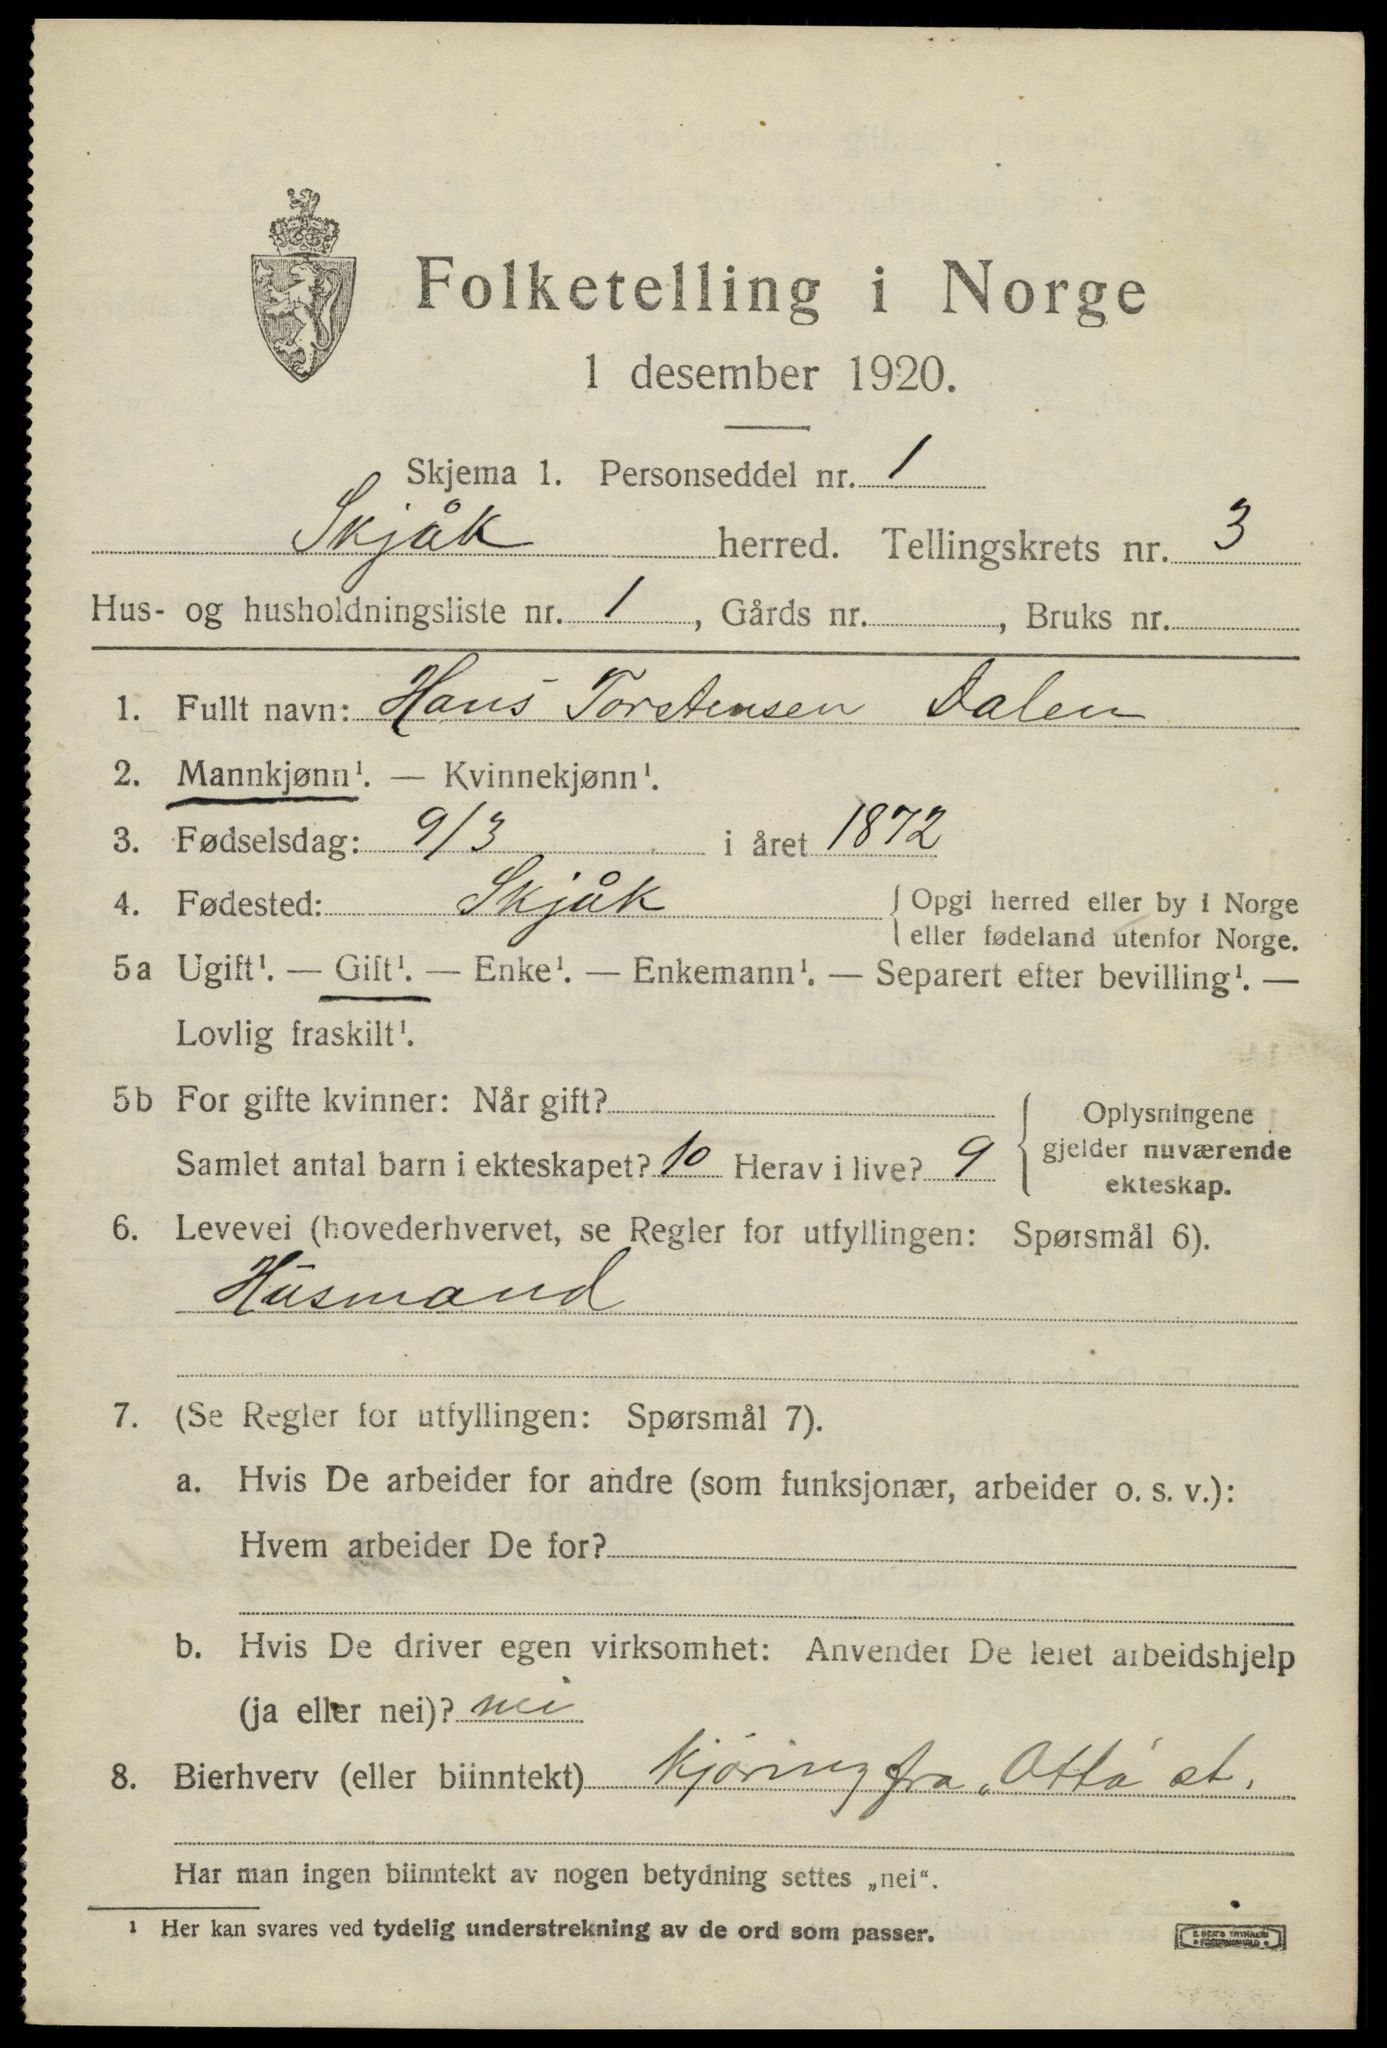 Folketelling i Norge
1 desember 1920.
Skjema 1. Personseddel nr. 1
Skjåk herred. Tellingskrets nr. 3
Hus- og husholdningsliste nr. 1, Gårds nr. , Bruks nr.
1. Fullt navn: Hans Torstensen Dalen
2. Mannkjønn¹. — Kvinnekjønn¹.
3. Fødselsdag: 9/3 i året 1872
4. Fødested: Skjåk { Opgi herred eller by i Norge
eller fødeland utenfor Norge.
5a Ugift¹. — Gift¹. — Enke¹. — Enkemann¹. — Separert efter bevilling¹. —
Lovlig fraskilt¹.
5b For gifte kvinner: Når gift?
Samlet antal barn i ekteskapet? 10 Herav i live? 9
{ Oplysningene
gjelder nuværende
ekteskap.
6. Levevei (hovederhvervet, se Regler for utfyllingen: Spørsmål 6).
Husmand
7. (Se Regler for utfyllingen: Spørsmål 7).
a. Hvis De arbeider for andre (som funksjonær, arbeider o. s. v.):
Hvem arbeider De for?
b. Hvis De driver egen virksomhet: Anvender De leiet arbeidshjelp
(ja eller nei)? nei
8. Bierhverv (eller biinntekt) kjøring fra „Otta" st.
Har man ingen biinntekt av nogen betydning settes „nei“.
¹ Her kan svares ved tydelig understrekning av de ord som passer.